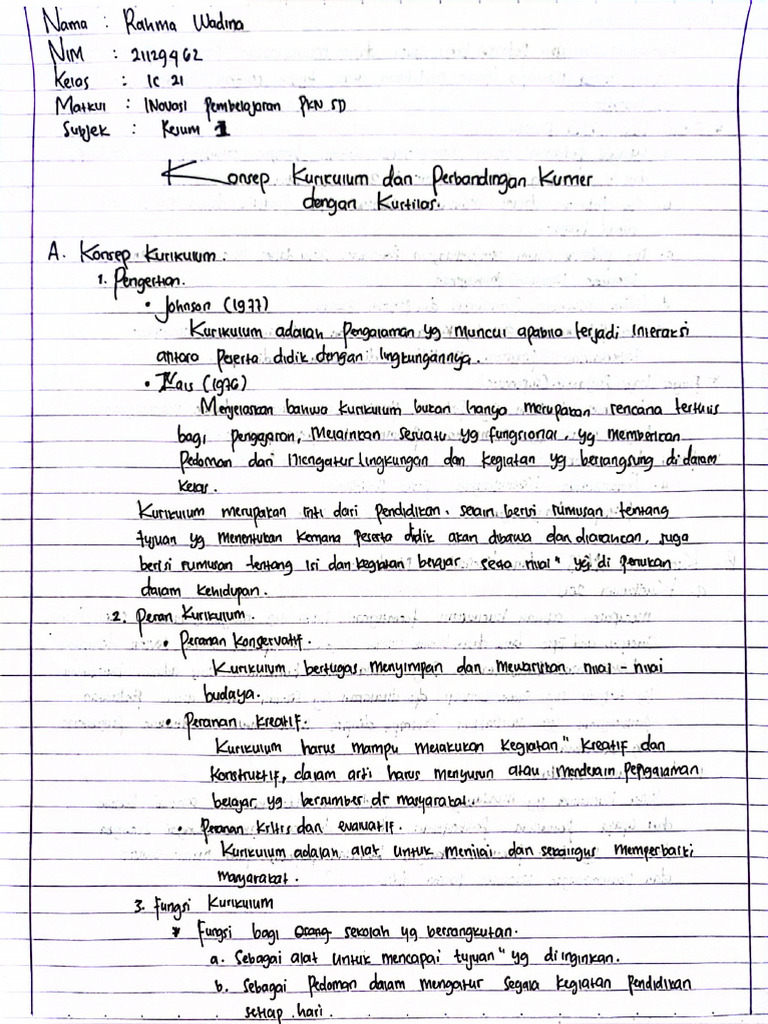 Nama : Rahma Wadina
NIM : 21129462
Kelas : IC 21
Matkul : INovasi Pembelajaran PKN SD
Subjek : Resum 1
Konsep Kurikulum dan Perbandingan Kumer
dengan Kurtilas.
A. Konsep Kurikulum.
1. Pengertian.
• Johnson (1977)
Kurikulum adalah pengalaman yg muncul apabila terjadi interaksi
antara peserta didik dengan lingkungannya.
(1976)
Menjelaskan bahwa kurikulum bukan hanya merupakan rencana tertulis
bagi pengajaran, melainkan sesuatu yg fungsional, yg memberikan
Pedoman dan mengatur lingkungan dan kegiatan yg berlangsung di dalam
kelas.
Kurikulum merupakan inti dari pendidikan. selain berisi rumusan tentang
tujuan yg menentukan kemana peserta didik akan dibawa dan diarahkan, juga
berisi rumusan tentang isi dan kegiatan belajar. serta nilai" yg di perlukan
dalam kehidupan.
2. Peran Kurikulum.
• Peranan Konservatif.
Kurikulum bertugas menyimpan dan mewariskan nilai - nilai
budaya.
• Peranan Kreatif.
Kurikulum harus mampu melakukan kegiatan" kreatif dan
Konstruktif, dalam arti harus menyusun atau mendesain pengalaman
belajar yg bersumber dr masyarakat.
• Peranan kritis dan evaluatif.
Kurikulum adalah alat untuk menilai dan sekaligus memperbaiki
masyarakat.
3. Fungsi Kurikulum
* Fungsi bagi sekolah yg bersangkutan.
a. Sebagai alat untuk mencapai tujuan" yg diinginkan.
b. Sebagai Pedoman dalam mengatur segala kegiatan pendidikan
setiap hari.